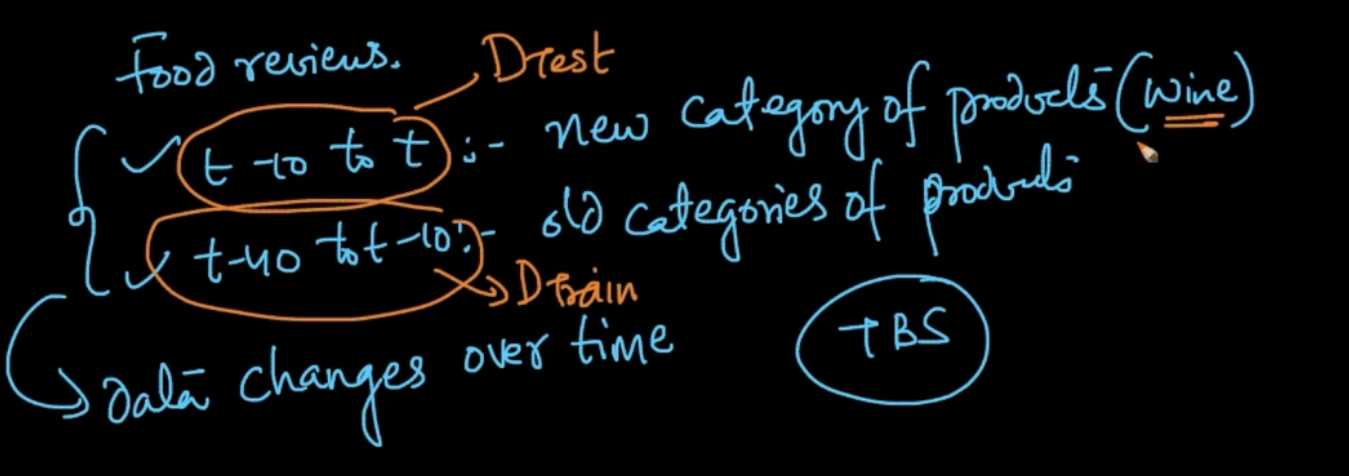 Food reviews. Dtest
t-10 to t :- new category of products (wine)
t-40 to t-10 :- old categories of products
Dtrain
TBS
Data changes over time